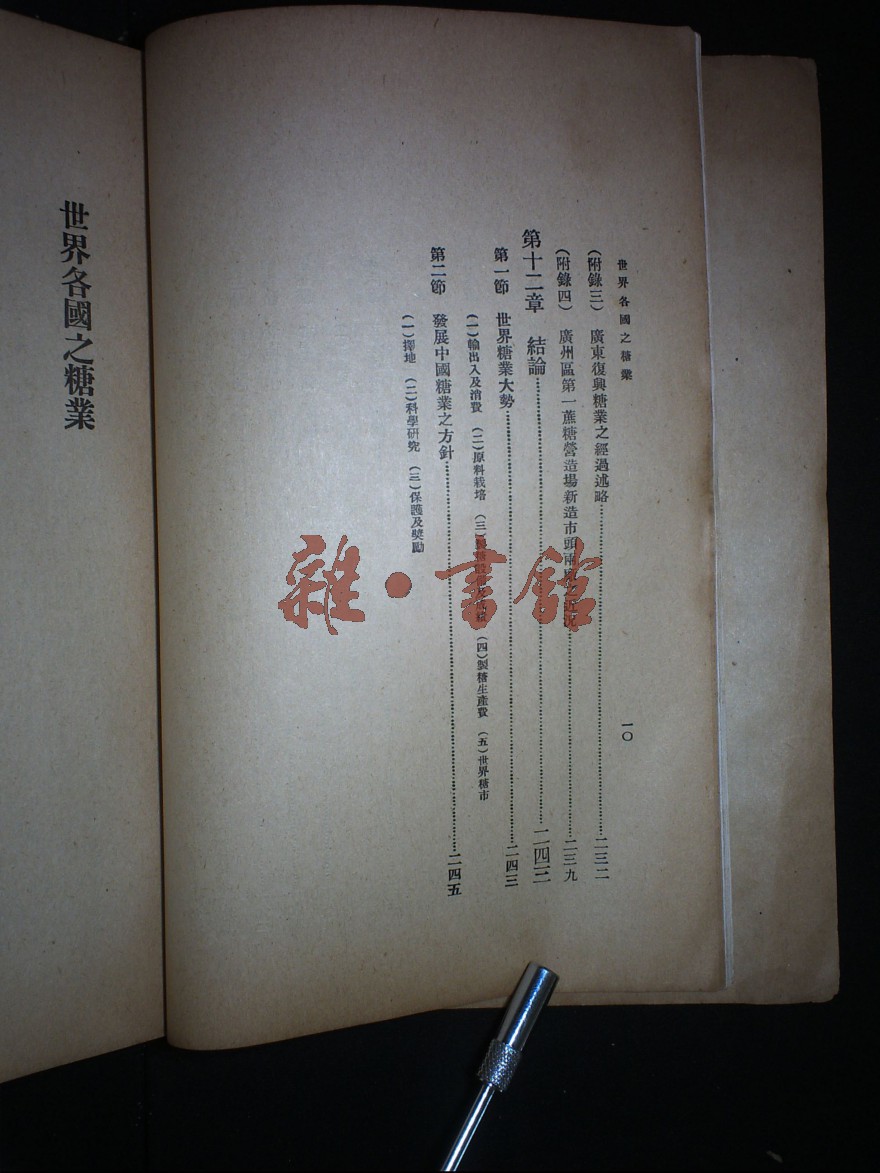 世界各國之糖業
一〇
(附錄三) 廣東復興糖業之經過述略……二三二
(附錄四) 廣州區第一蔗糖營造場新造市頭兩 近況……二三九
第十二章 結論……二四三
第一節 世界糖業大勢……二四三
(一)輸出入及消費 (二)原料栽培 (三)製糖 及 (四)製糖生產費 (五)世界糖市
第二節 發展中國糖業之方針……二四五
(一)擇地 (二)科學研究 (三)保護及獎勵
世界各國之糖業
雜·書館